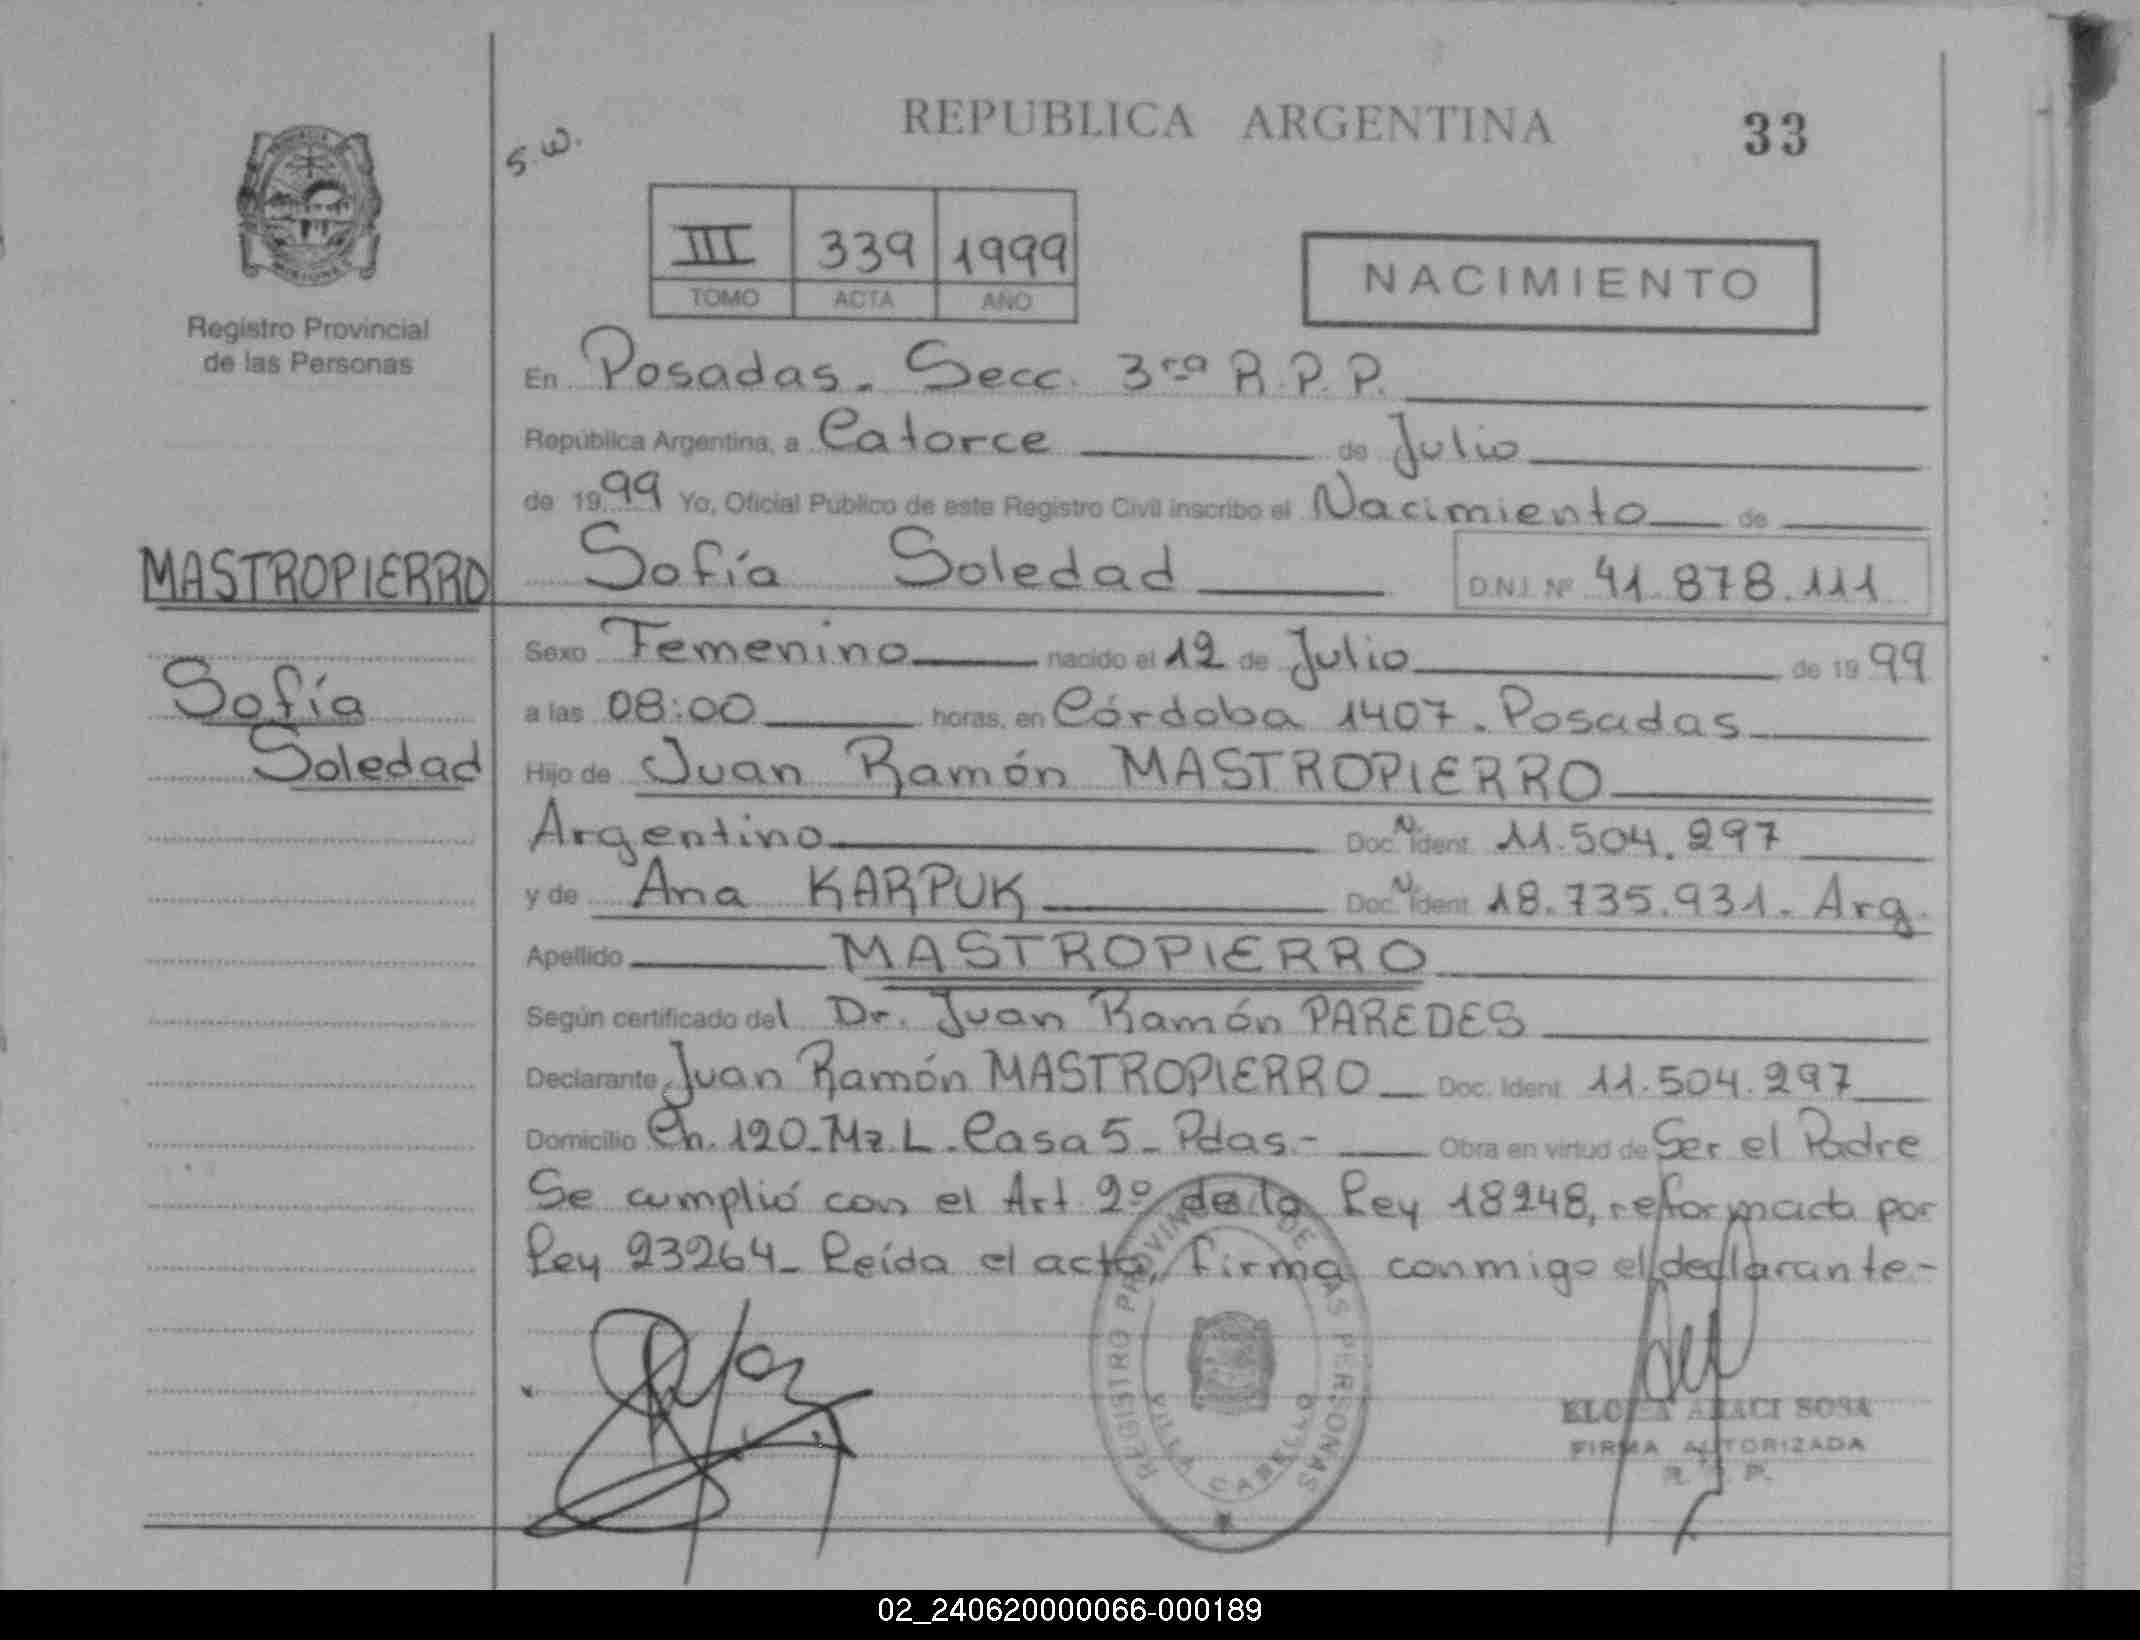 REPUBLICA ARGENTINA
33
s.w.
III 339 1999
TOMO ACTA AÑO
NACIMIENTO
Registro Provincial
de las Personas
En Posadas. Secc. 3ra R.P.P.
República Argentina, a Catorce de Julio
de 1999 Yo, Oficial Público de este Registro Civil inscribo el Nacimiento de
MASTROPIERRO
Sofía Soledad D.N.I. Nº 41.878.111
Sexo Femenino nacido el 12 de Julio de 1999
Sofía
a las 08:00 horas, en Córdoba 1407. Posadas
Soledad
Hijo de Juan Ramón MASTROPIERRO
Argentino Doc. N. Ident. 11.504.297
y de Ana KARPUK Doc. N. Ident. 18.735.931. Arg.
Apellido MASTROPIERRO
Según certificado del Dr. Juan Ramón PAREDES
Declarante Juan Ramón MASTROPIERRO Doc. Ident. 11.504.297
Domicilio Ch. 120-Mz. L. Casa 5 - Pdas.- Obra en virtud de Ser el Padre
Se cumplió con el Art. 2º de la Ley 18248, reformada por
Ley 23264- Leída el acta, firma conmigo el declarante-
REGISTRO PROVINCIAL DE LAS PERSONAS
VILLA CABELLO
ARACI SOSA
FIRMA AUTORIZADA
R. P. P.
02_240620000066-000189